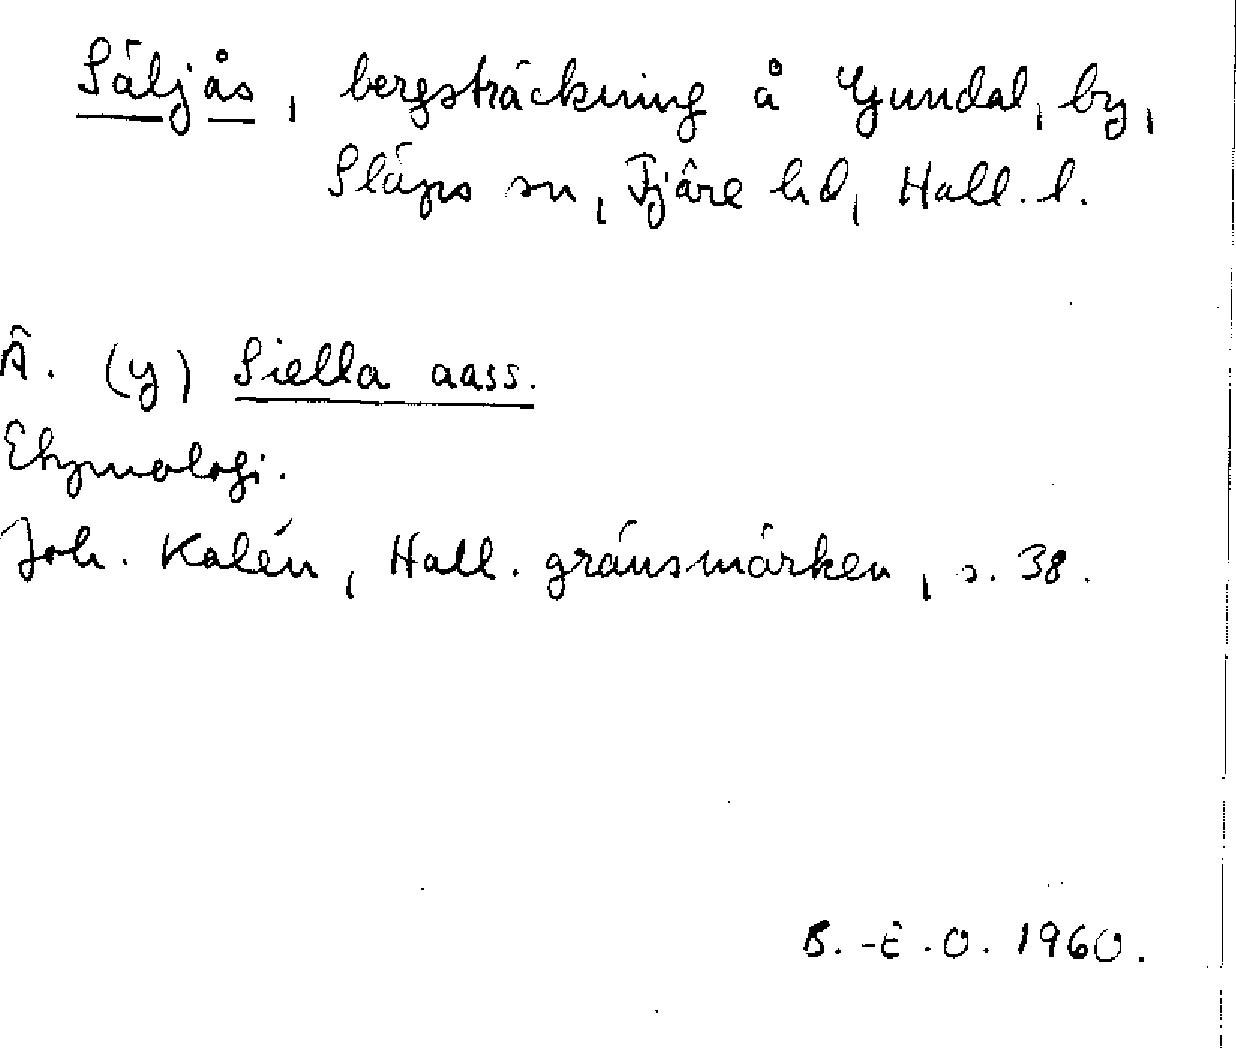 Säljås, bergsträckning å Gundal, by,
Släps sn, Fjäre hd, Hall. l.
Ä. (y) Siella aass.
Etymologi.
Joh. Kalén, Hall. gränsmärken, s. 38.
B.-E.O. 1960.